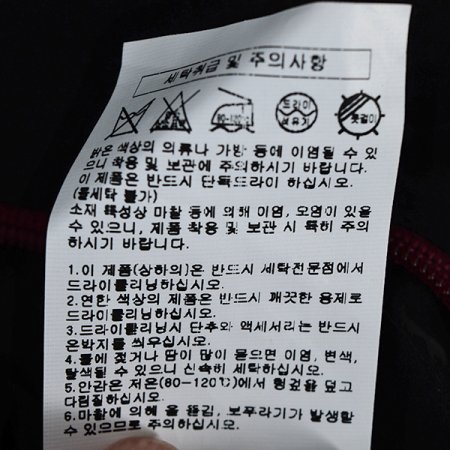 세탁취급 및 주의사항
80-120℃
드라이
석유계
옷걸이
밝은 색상의 의류나 가방 등에 이염될 수 있
으니 착용 및 보관에 주의하시기 바랍니다.
이 제품은 반드시 단독드라이 하십시오.
(물세탁 불가)
소재 특성상 마찰 등에 의해 이염, 오염이 있을
수 있으니, 제품 착용 및 보관 시 특히 주의
하시기 바랍니다.
1.이 제품(상하의)은 반드시 세탁전문점에서
드라이클리닝하십시오.
2.연한 색상의 제품은 반드시 깨끗한 용제로
드라이클리닝하십시오.
3.드라이클리닝시 단추와 액세서리는 반드시
은박지를 씌우십시오.
4.물에 젖거나 땀이 많이 묻으면 이염, 변색,
탈색될 수 있으니 신속히 세탁하십시오.
5.안감은 저온(80-120℃)에서 헝겊을 덮고
다림질하십시오.
6.마찰에 의해 올 뜯김, 보푸라기가 발생할
수 있으므로 주의하십시오.